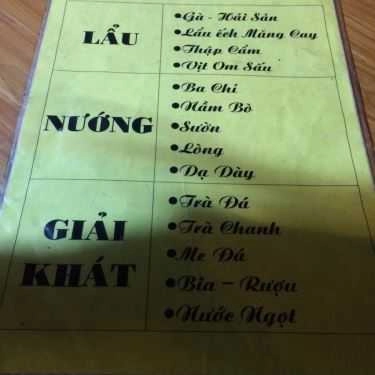 LẨU
•Gà - Hải Sản
•Lẩu ếch Măng Cay
•Thập Cẩm
•Vịt Om Sấu
NƯỚNG
•Ba Chỉ
•Nầm Bò
•Sườn
•Lòng
•Dạ Dày
GIẢI KHÁT
•Trà Đá
•Trà Chanh
•Me Đá
•Bia – Rượu
•Nước Ngọt